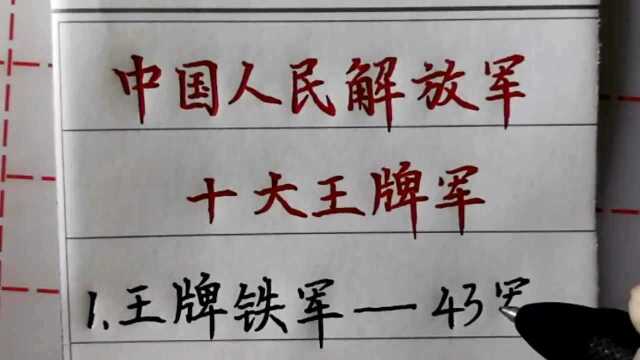 中国人民解放军
十大王牌军
1.王牌铁军—43军